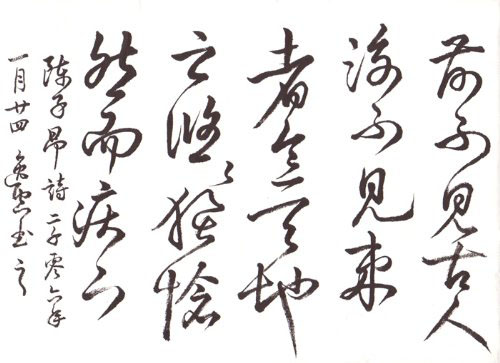 前不見古人
後不見來
者念天地
之悠々獨愴
然而涕下
陳子昂詩二千零六年
一月廿四